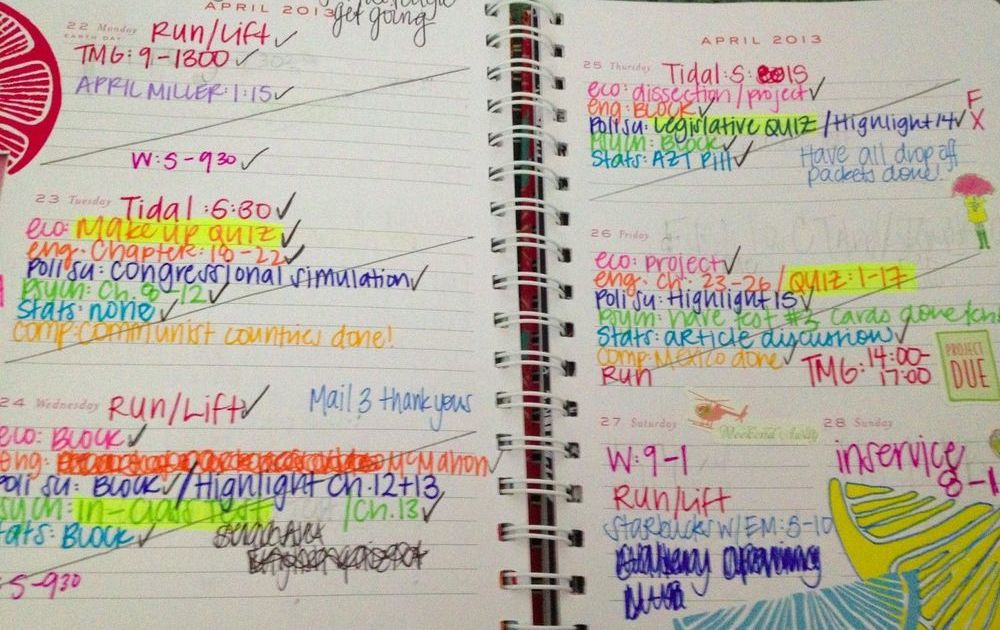 APRIL 2013
get going
22 Monday Run/Lift ✓
EARTH DAY
TMG: 9-1300 ✓
APRIL MILLER: 1:15 ✓
W: 5-930 ✓
23 Tuesday Tidal: 5:30 ✓
eco: Make up QUIZ ✓
eng: Chapter: 18-22 ✓
Poli su: congressional simulation ✓
Psych: Ch. 8-12 ✓
Stats: none ✓
comp: communist countries done!
24 Wednesday Run/Lift ✓ Mail 3 thankyous
eco: BLOCK ✓
eng: McMahon ✓
poli su: BLOCK ✓ / Highlight Ch. 12+13
psych: in-class test /Ch. 13 ✓
stats: Block ✓
: 5-930
APRIL 2013
25 Thursday Tidal: 5: 15
eco: dissection/project ✓
eng: BLOCK ✓
Poli su: Legislative QUIZ / Highlight 14 ✓
F
X
Psych: BLOCK ✓
Stats: AZT Pill ✓
Have all drop off
packets done!
26 Friday
eco: project ✓
eng: Ch. 23-26 / QUIZ: 1-17
Poli su: Highlight 15 ✓
Psych: have test #3 cards done
Stats: article discussion ✓
comp: Mexico done ✓
Run TMG: 14:00-
17:00
PROJECT
DUE
27 Saturday
Weekend Away
28 Sunday
W: 9-1
inservice
8-1
Run/Lift
Starbucks W/EM: 5-10